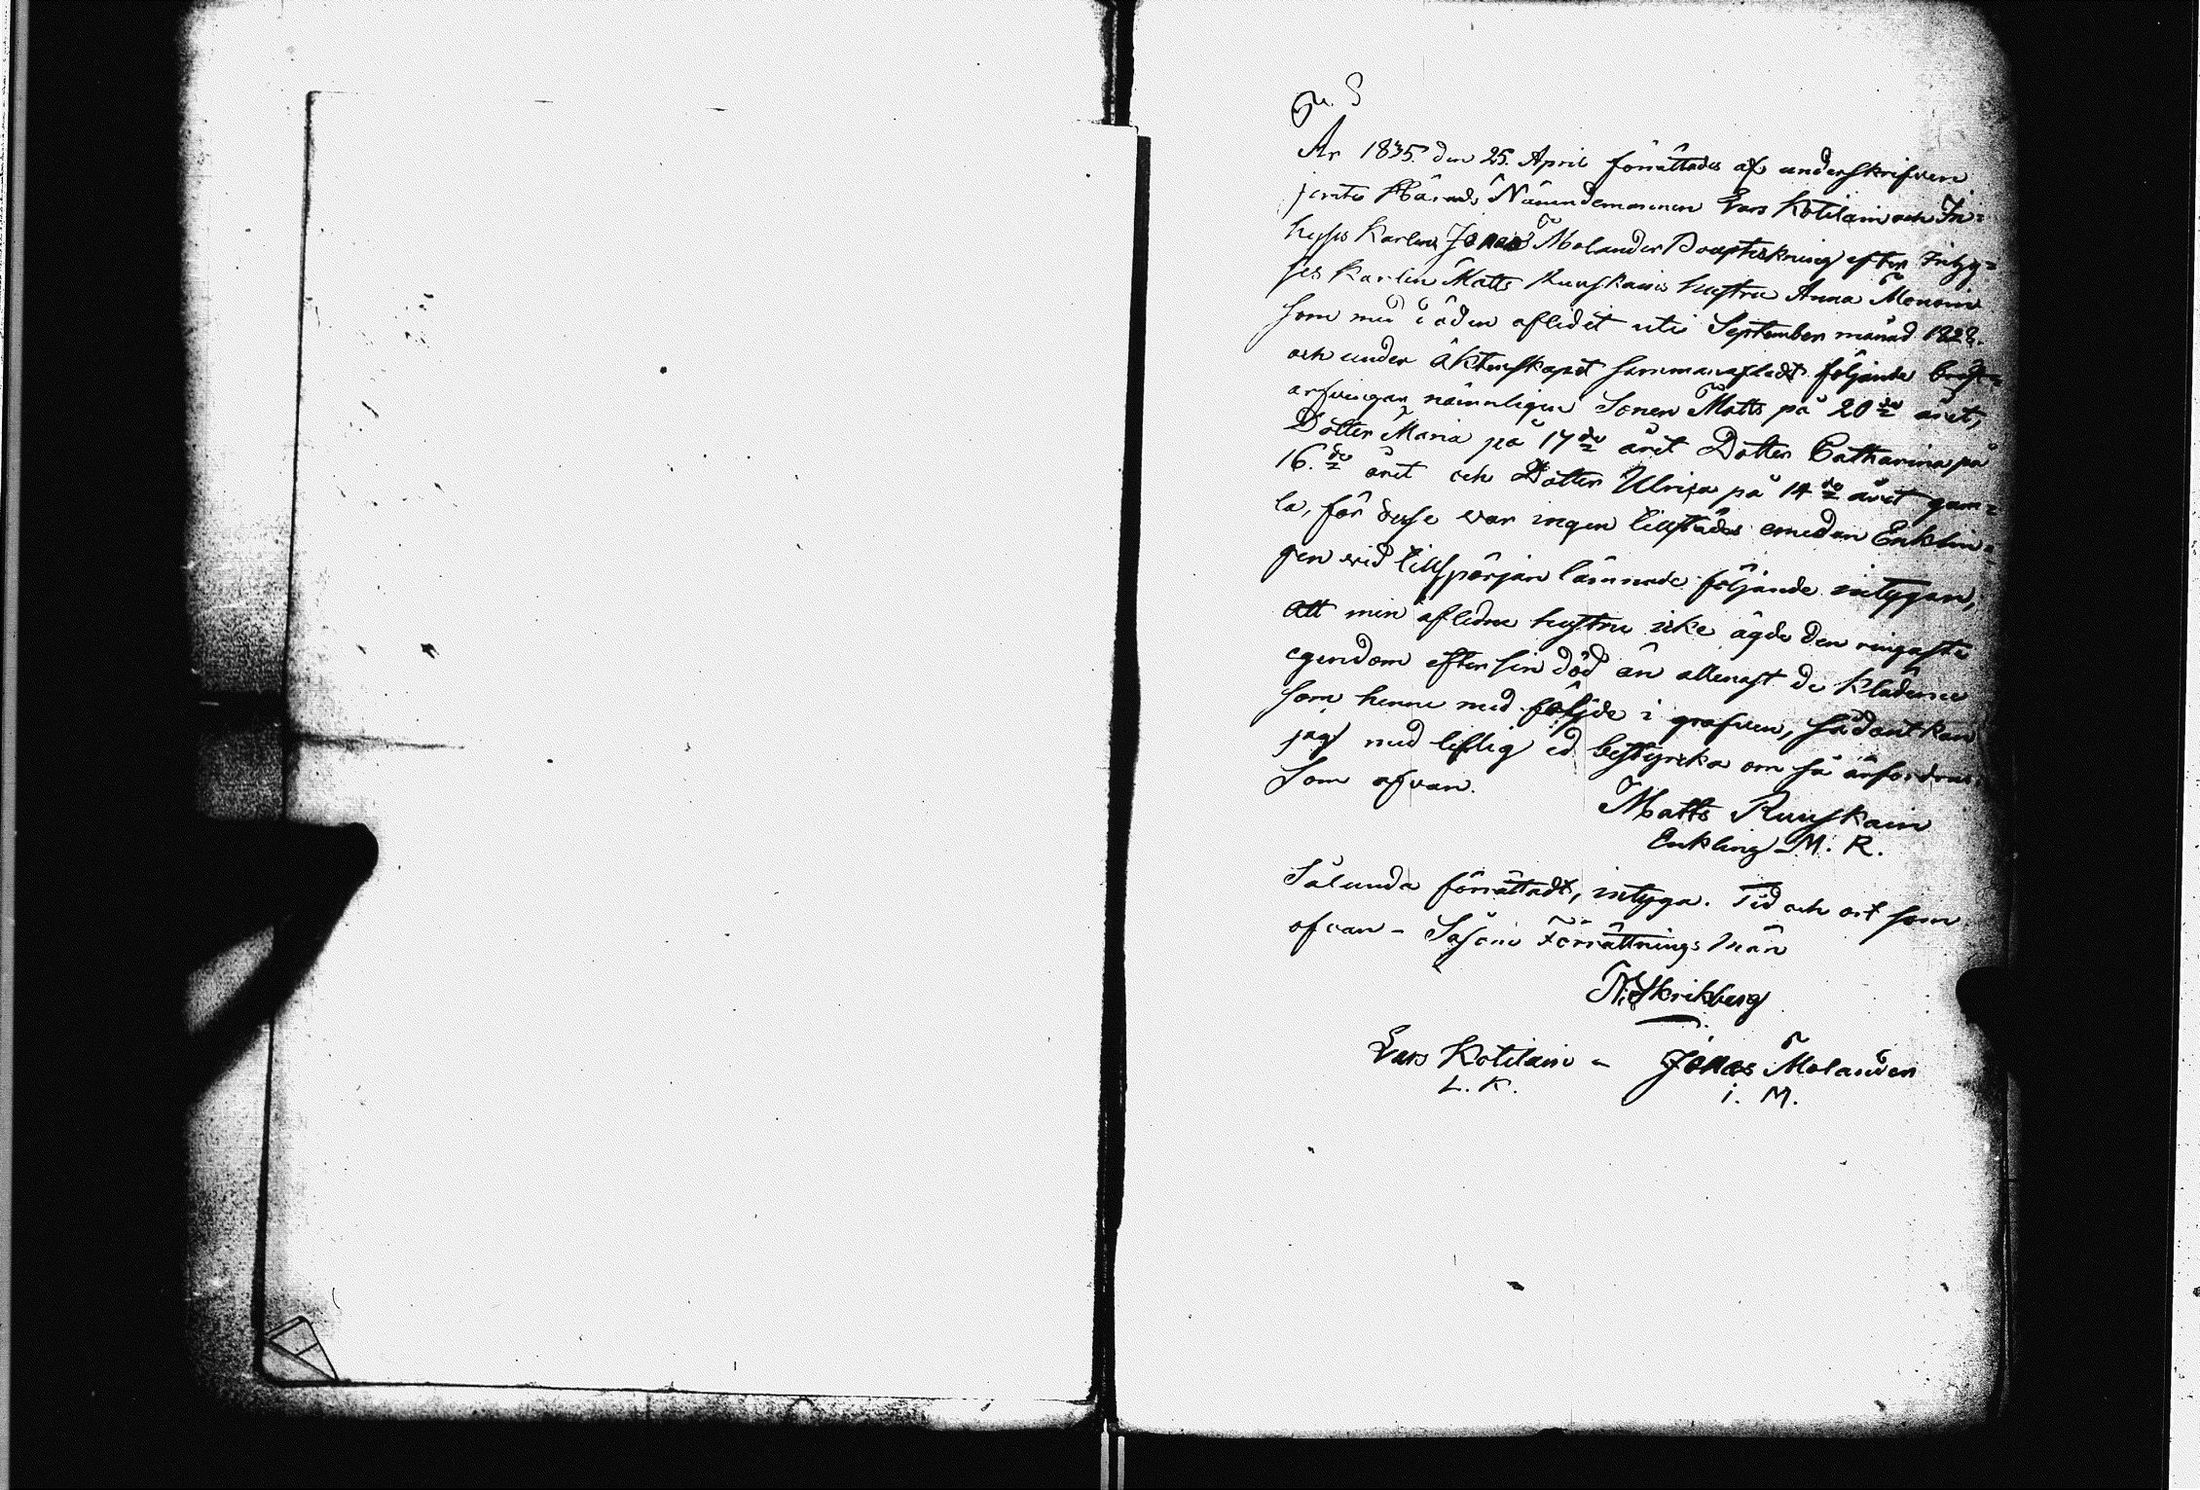 År 1835. den 25. April förrättades af underskrifven
jemte Härads Nämndemannen Lars Kotilain och In=
hyses Karlen Jonas Molander Bouptekning efter Inhy=
ses Karlen Matts Ruuskains hustru Anna Mononi
som med döden aflidit uti September månad 1828.
och under äktenskapet sammanaflat följande bröst=
arfvingar nämnligen Sonen Matts på 20de året,
Dotter Maria på 17de året Dotter Catharina på
16.de året och Dotter Ulrica på 14de året gam=
la, för desse var ingen tillstädes emedan Enklin=
gen vid tillspörjan lämnade följande intygan,
Att min aflidne hustru icke ägde den ringaste
egendom efter sin död än allenast de kläderne
som henne med följde i grafven, sådant kan
jag med liflig ed bestyrcka om så ärfordras
Som ofvan.
Matts Ruuskain
Enkling M. R.
Sålunda förrättadt, intyga. Tid och ort som
ofvan - Såsom Förrättnings män
Lars Kotilain - Jonas Molander
L. K. i. M.